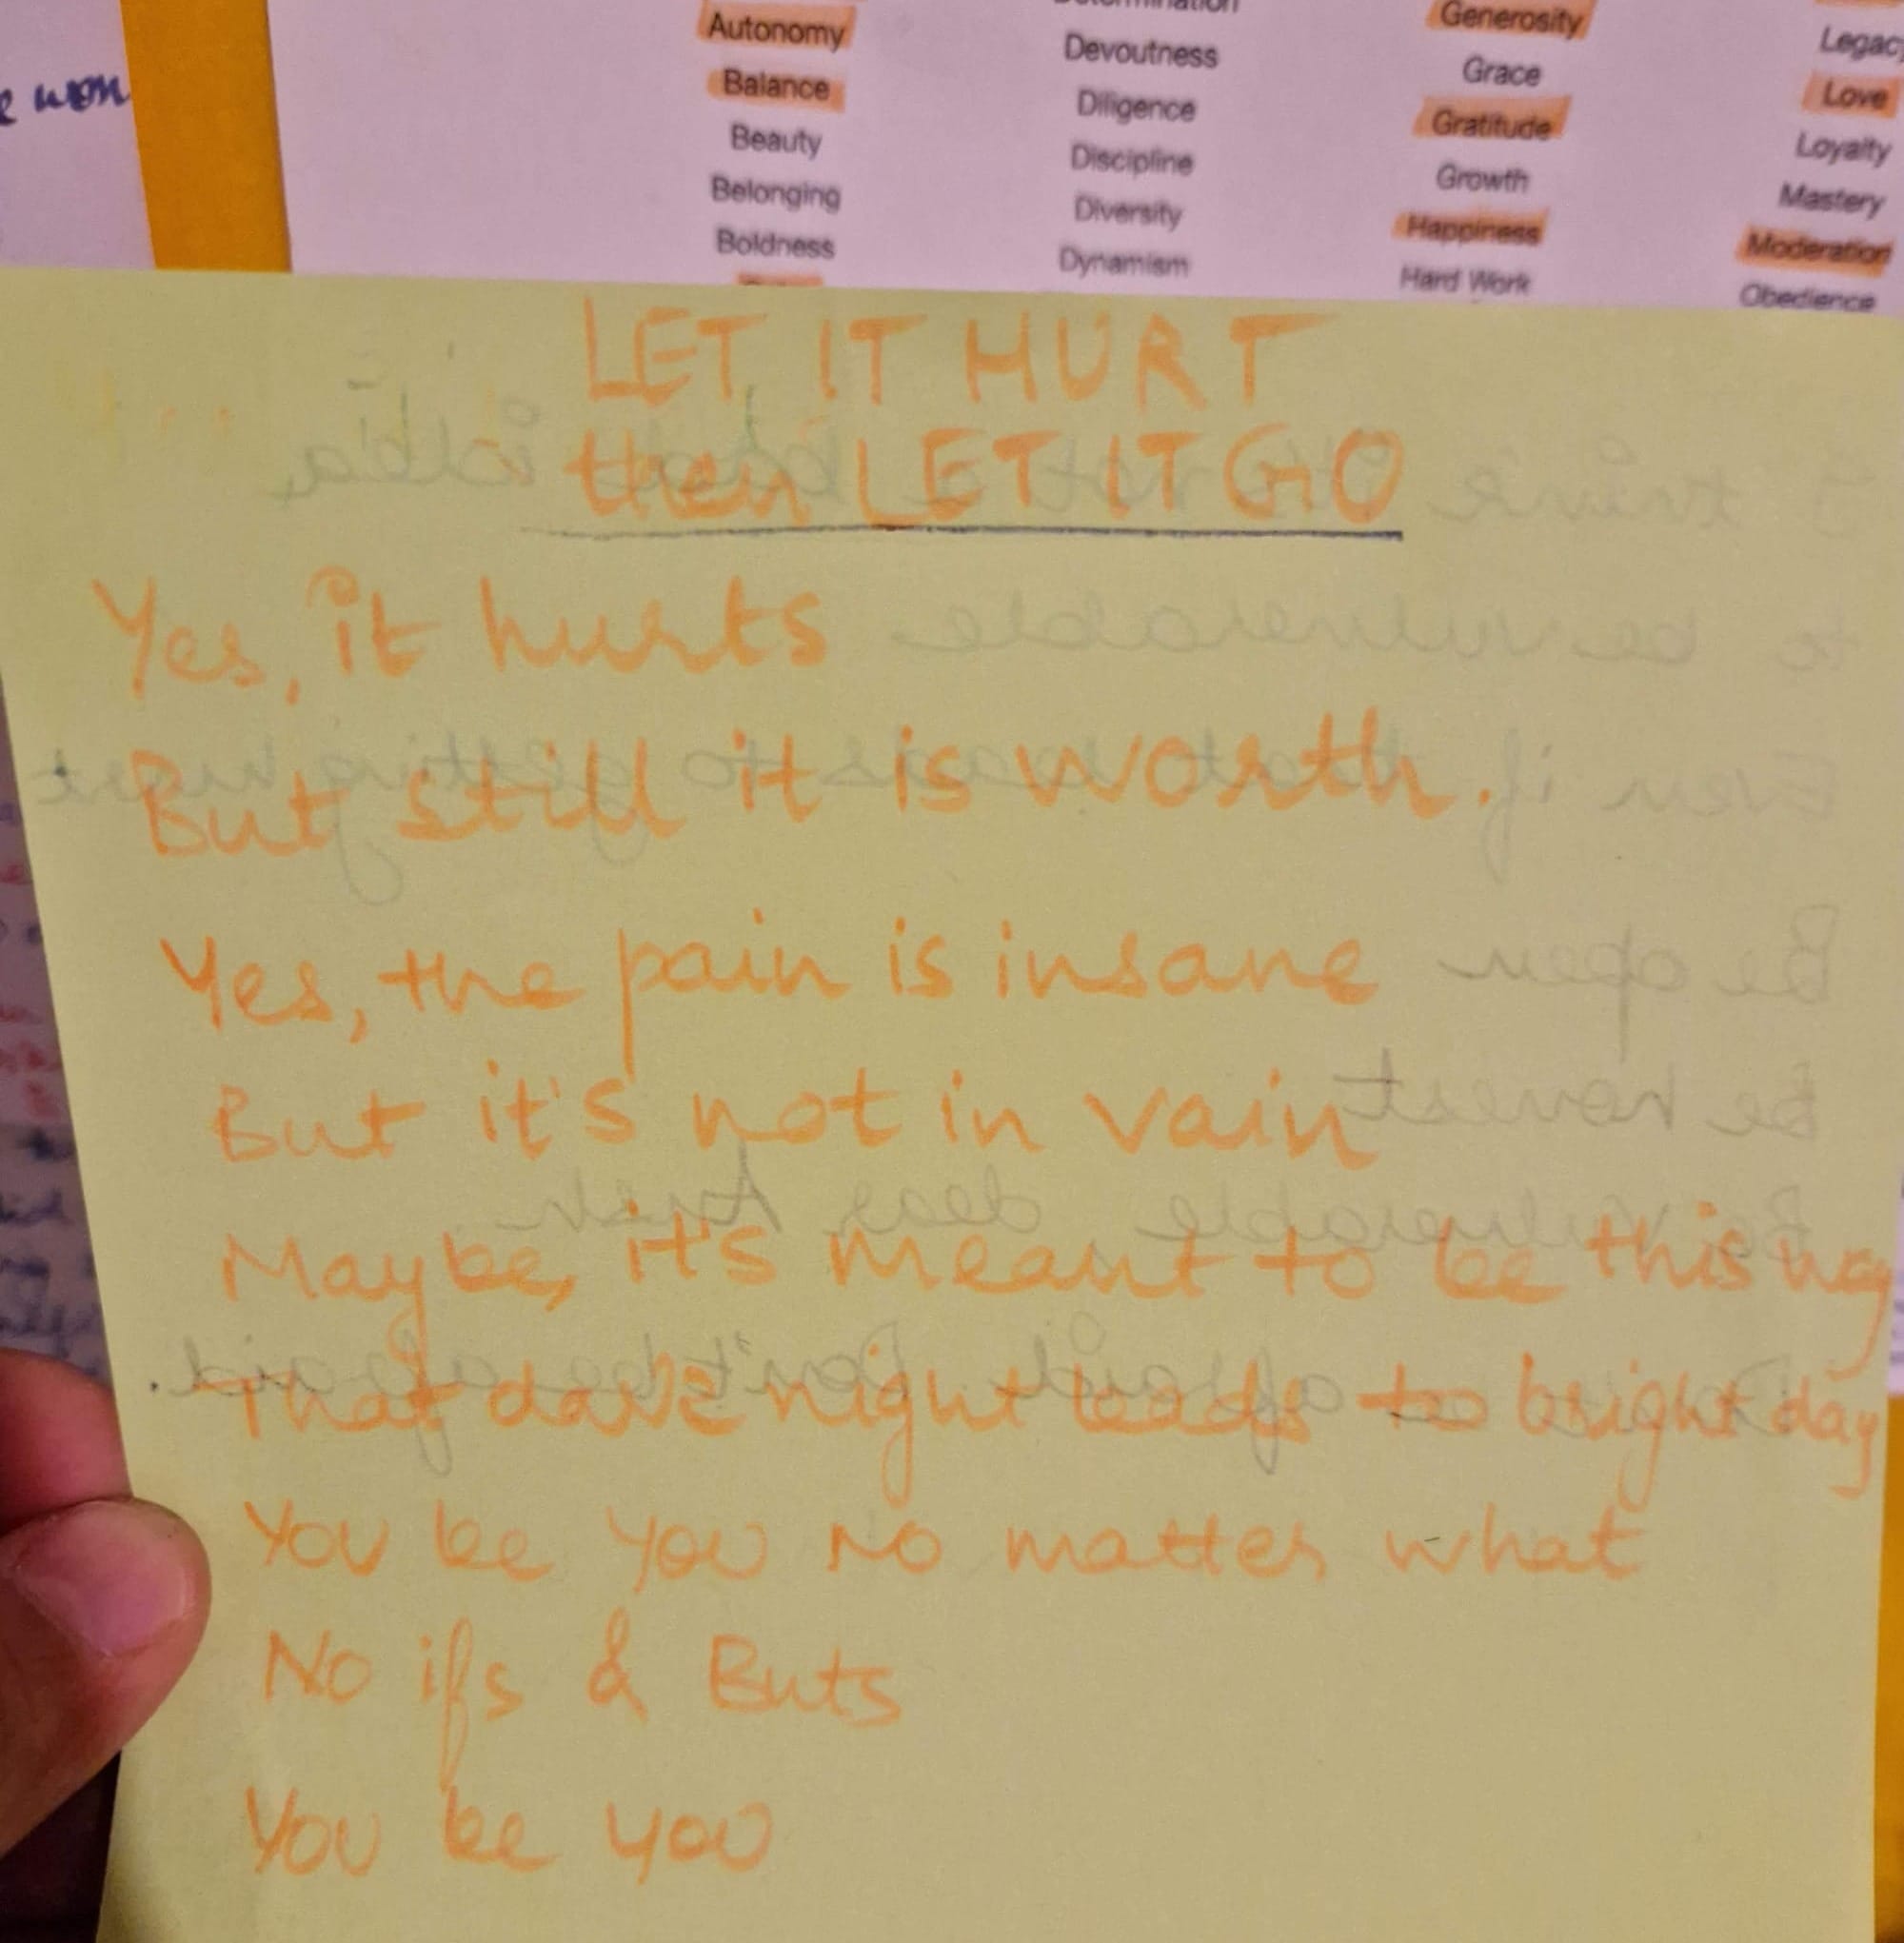 e won
Autonomy
Balance
Beauty
Belonging
Boldness
Determination
Devoutness
Diligence
Discipline
Diversity
Dynamism
Generosity
Grace
Gratitude
Growth
Happiness
Hard Work
Legac
Love
Loyalty
Mastery
Moderation
Obedience
LET IT HURT
then LET IT GO
Yes, it hurts
But still it is worth.
Yes, the pain is insane
But it's not in vain
Maybe, it's meant to be this way
That dark night leads to bright day
You be you no matter what
No ifs & Buts
You be you